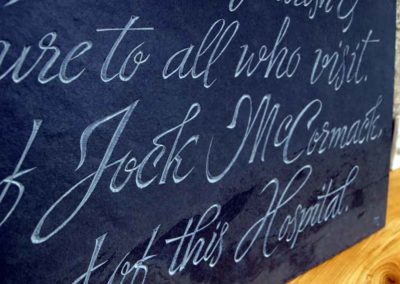 ure to all who visit.
f Jock McCormack,
t of this Hospital.